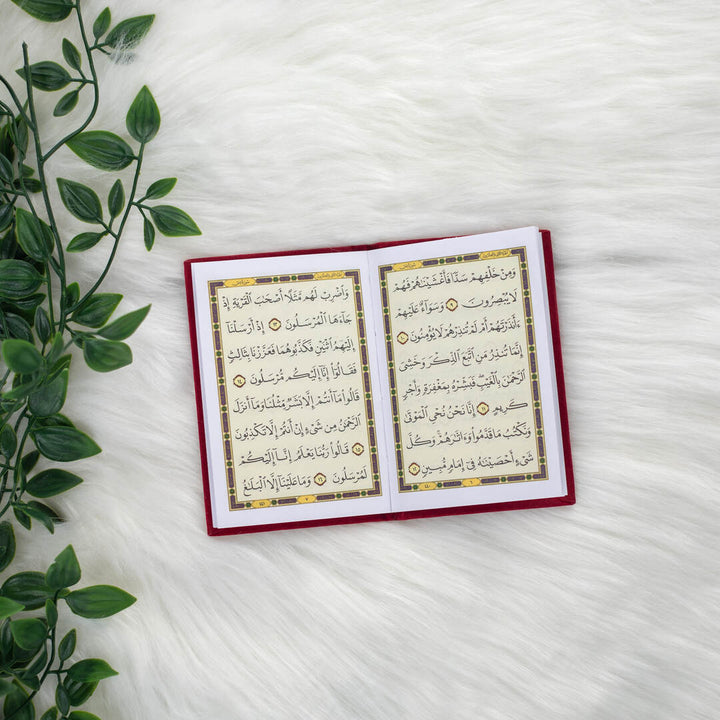 وَمِنْ خَلْفِهِمْ سَدًّا فَأَغْشَيْنَٰهُمْ فَهُمْ
لَا يُبْصِرُونَ ٩ وَسَوَآءٌ عَلَيْهِمْ
ءَأَنذَرْتَهُمْ أَمْ لَمْ تُنذِرْهُمْ لَا يُؤْمِنُونَ ١٠
إِنَّمَا تُنذِرُ مَنِ ٱتَّبَعَ ٱلذِّكْرَ وَخَشِىَ
ٱلرَّحْمَٰنَ بِٱلْغَيْبِ فَبَشِّرْهُ بِمَغْفِرَةٍ وَأَجْرٍ
كَرِيمٍ ١١ إِنَّا نَحْنُ نُحْىِ ٱلْمَوْتَىٰ
وَنَكْتُبُ مَا قَدَّمُوا۟ وَءَاثَٰرَهُمْ وَكُلَّ
شَىْءٍ أَحْصَيْنَٰهُ فِىٓ إِمَامٍ مُّبِينٍ ١٢
٦
٤٤٠
وَٱضْرِبْ لَهُم مَّثَلًا أَصْحَٰبَ ٱلْقَرْيَةِ إِذْ
جَآءَهَا ٱلْمُرْسَلُونَ ١٣ إِذْ أَرْسَلْنَآ
إِلَيْهِمُ ٱثْنَيْنِ فَكَذَّبُوهُمَا فَعَزَّزْنَا بِثَالِثٍ
فَقَالُوٓا۟ إِنَّآ إِلَيْكُم مُّرْسَلُونَ ١٤
قَالُوا۟ مَآ أَنتُمْ إِلَّا بَشَرٌ مِّثْلُنَا وَمَآ أَنزَلَ
ٱلرَّحْمَٰنُ مِن شَىْءٍ إِنْ أَنتُمْ إِلَّا تَكْذِبُونَ
١٥ قَالُوا۟ رَبُّنَا يَعْلَمُ إِنَّآ إِلَيْكُمْ
لَمُرْسَلُونَ ١٦ وَمَا عَلَيْنَآ إِلَّا ٱلْبَلَٰغُ
٧
٤٤١